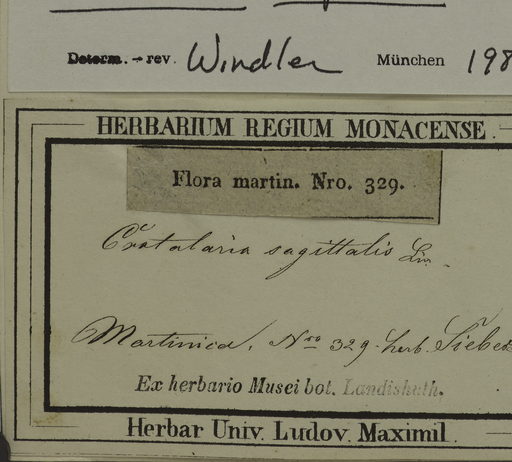 Determ. - rev. Windler München 198
HERBARIUM REGIUM MONACENSE.
Flora martin. Nro. 329.
Crotalaria sagittalis Lin.
Martinica. Nro 329. herb. Sieber
Ex herbario Musei bot. Landishuth.
Herbar Univ. Ludov. Maximil.